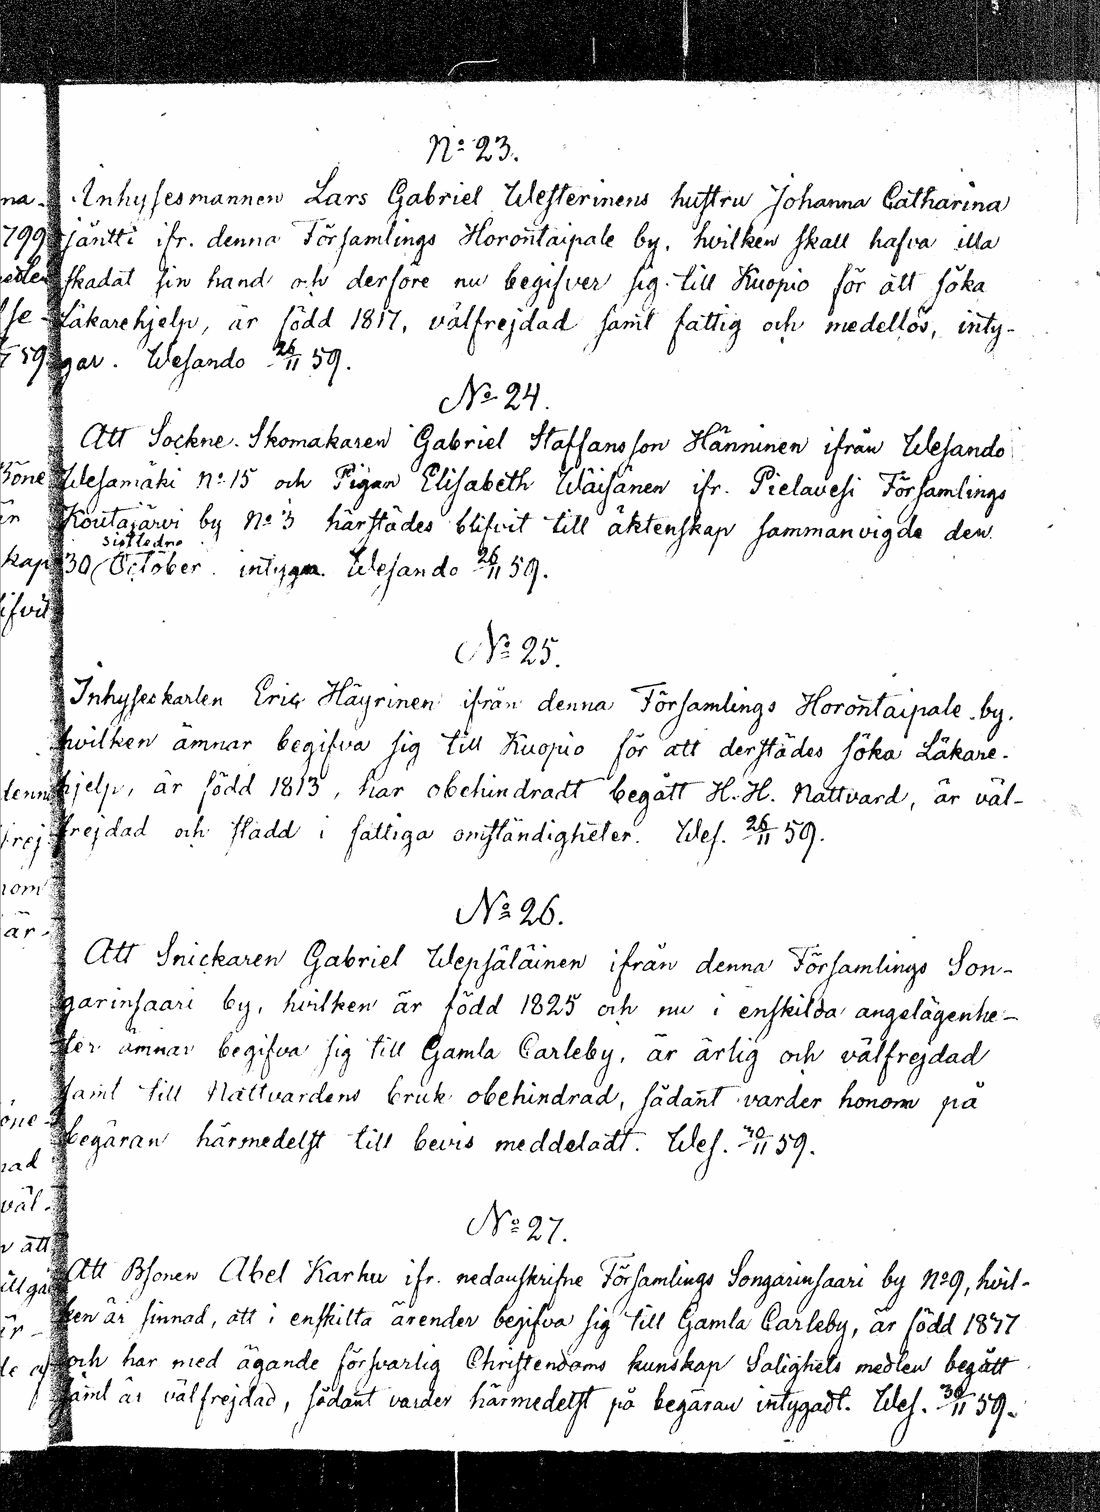 No 23.
Inhysesmannen Lars Gabriel Westerinens hustru Johanna Catharina
Jäntti ifr. denna Församlings Horontaipale by, hvilken skall hafva illa
skadat sin hand och derföre nu begifver sig till Kuopio för att söka
Läkarehjelp, är född 1817, välfrejdad samt fattig och medellös, inty-
gar. Wesando 26/11 59.
No 24.
Att Sockne-Skomakaren Gabriel Staffansson Hänninen ifrån Wesando
Wesamäki No 15 och Pigan Elisabeth Wäisänen ifr. Pielavesi Församlings
Koutajärvi by No 3 härstädes blifvit till äktenskap sammanvigde den
sistledne
30 October intygas. Wesando 26/11 59.
No 25.
Inhyseskarlen Eric Häyrinen ifrån denna Församlings Horontaipale by,
hvilken ämnar begifva sig till Kuopio för att derstädes söka Läkare-
hjelp, är född 1813, har obehindradt begått H. H. Nattvard, är väl-
frejdad och stadd i fattiga omständigheter. Wes. 26/11 59.
No 26.
Att Snickaren Gabriel Wepsäläinen ifrån denna Församlings Son-
garinsaari by, hvilken är född 1825 och nu i enskilda angelägenhe-
ter ämnar begifva sig till Gamla Carleby, är ärlig och välfrejdad
samt till Nattvardens bruk obehindrad, sådant varder honom på
begäran härmedelst till bevis meddeladt. Wes. 30/11 59.
No 27.
Att Bsonen Abel Karhu ifr. nedanskrifne Församlings Songarinsaari by No 9, hvil-
ken är sinnad, att i enskilta ärender begifva sig till Gamla Carleby, är född 1837
och har med ägande försvarlig Christendoms kunskap Salighets medlen begått
samt är välfrejdad, sådant varder härmedelst på begäran intygadt. Wes. 30/11 59.